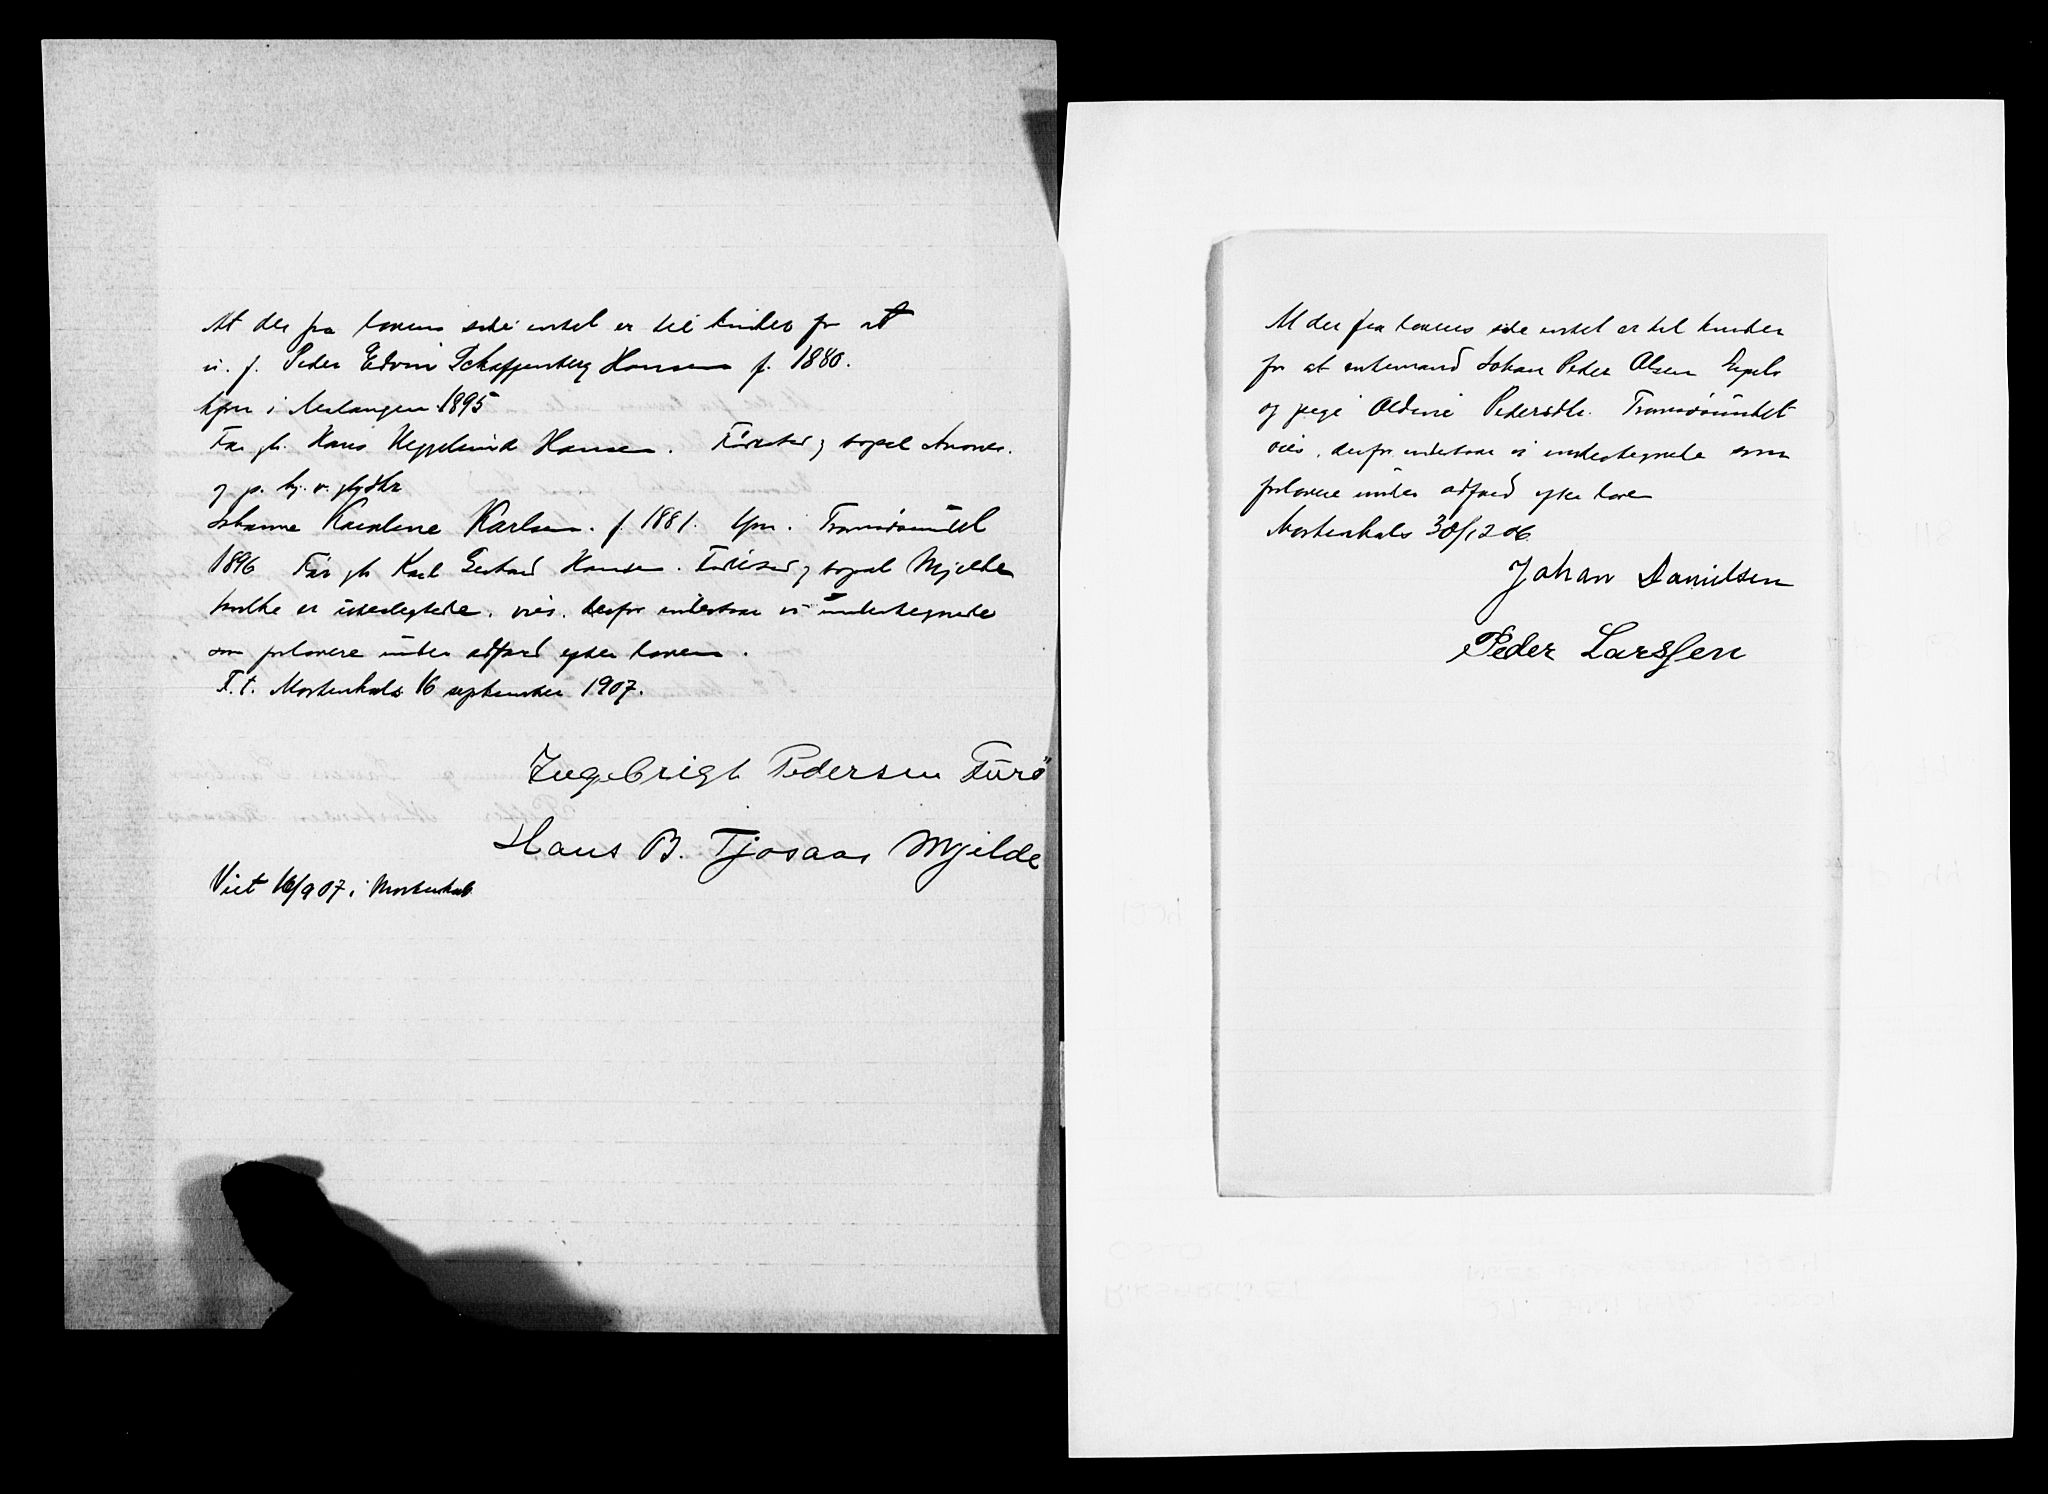 At der fra lovens side intet er til hinder for at
u. f. Peder Edvin Schaffenberg Hansen f. 1880.
kfm i Malangen 1895
Far gb. Hans Heggelund Hansen. Födested og bopæl Ansnes.
og p. by. v. gbdtr
Johanne Karoline Karlsen. f. 1881. kfm. i. Tromsösundet
1896 Far gb Karl Gerhard Hansen. Födested og bopæl Mjelde
hvilke er ubeslegtede, vies. derfor indestaar vi undertegnede
som forlovere under adfærd efter loven.
T. t. Mortenhals 16 september 1907.
Ingebrigt Pedersen Furö
Hans B. Tjosaas Mjelde
Viet 16/9 07 i Mortenhals
At der fra lovens side intet er til hinder
for at enkemand Johan Peder Olsen
og pige Oldine Pedersdtr. Tromsösundet
vies, derfor indestaar vi undertegnede som
forlovere under adfærd efter loven
Mortenhals 30/12 06
Johan Danielsen
Peder Larssen